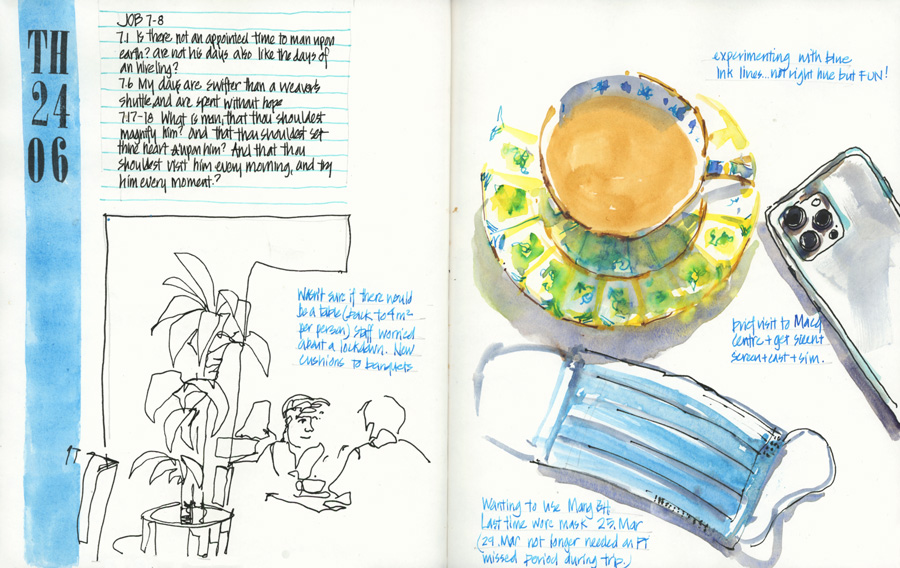 TH
24
06
JOB 7-8
7.1 Is there not an appointed time to man upon
earth? are not his days also like the days of
an hireling?
7.6 My days are swifter than a weaver's
shuttle, and are spent without hope
7.17-18 What is man, that thou shouldest
magnify him? and that thou shouldest set
thine heart upon him? And that thou
shouldest visit him every morning, and try
him every moment?
Wasn't sure if there would
be a table (back to 4m²
per person) staff worried
about a lockdown. New
cushions to banquets.
experimenting with blue
ink lines...not right hue but FUN!
brief visit to Macq
Centre + get silent
screen + cast + sim.
Wanting to use Mary
Last time wore mask 25. Mar
(29. Mar not longer needed on PT
missed period during trip.)